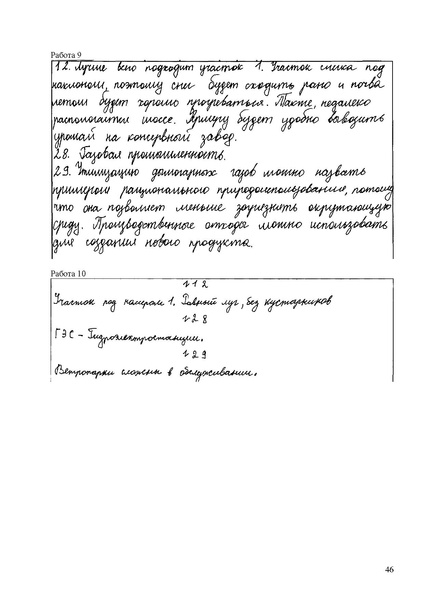 Работа 9
12. Лучше всего подходит участок 1. Участок слегка под
наклоном, поэтому снег будет сходить рано и почва
летом будет хорошо прогреваться. Также, недалеко
располагается шоссе. Фермеру будет удобно вывозить
урожай на консервный завод.
28. Газовая промышленность.
29. Утилизацию доменных газов можно назвать
примером рационального природопользования, потому
что она позволяет меньше загрязнять окружающую
среду. Производственные отходы можно использовать
для создания нового продукта.
Работа 10
№12
Участок под номером 1. Ровный луг, без кустарников
№28
ГЭС - Гидроэлектростанции.
№29
Ветропарки сложны в обслуживании.
46